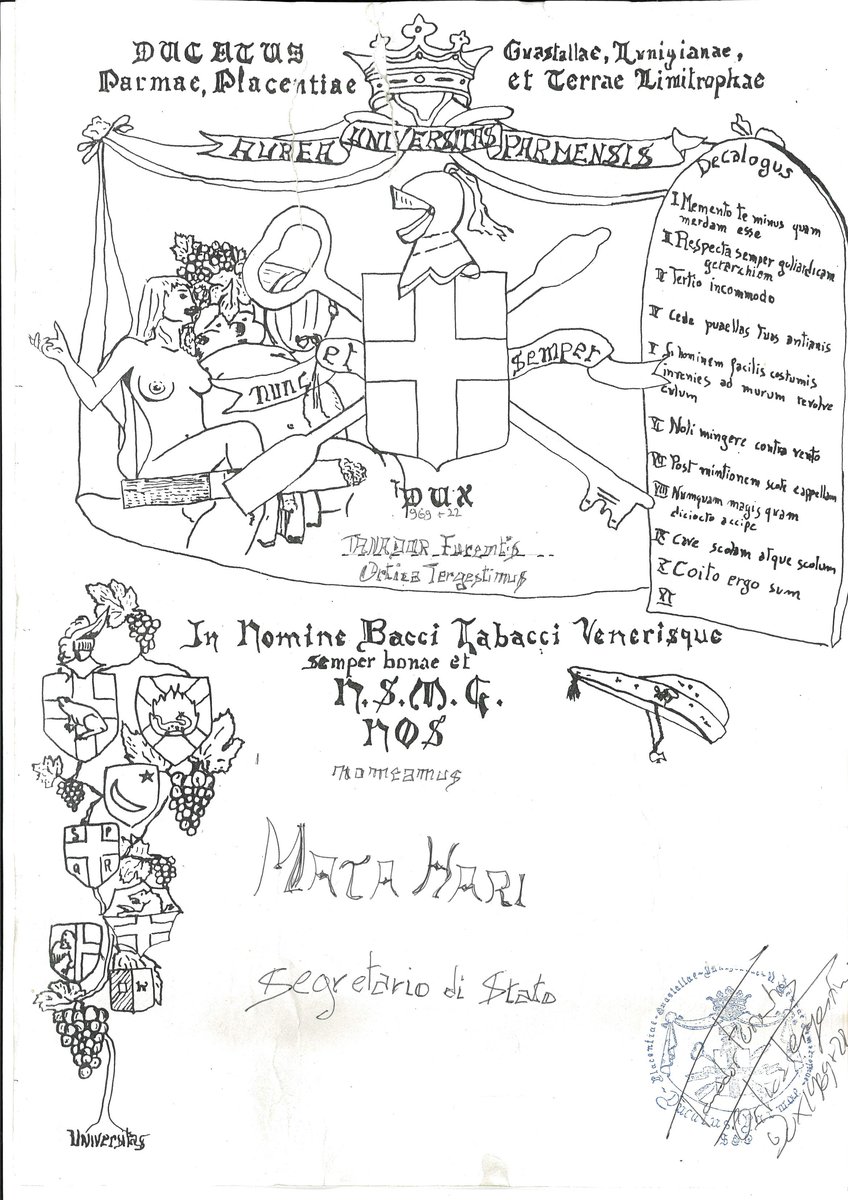 DUCATUS
Parmae, Placentiae
Guastallae, Lunigianae,
et Terrae Limitrophae
AUREA UNIVERSITAS PARMENSIS
Decalogus
I Memento te minus quam
merdam esse
II Respecta semper goliardicam
gerarchiam
III Tertio incommodo
IV Cede puaellas tuas antianis
V Si hominem facilis costumis
invenies ad murum revolve
culum
VI Noli mingere contra vento
VII Post mintionem scote cappellam
VIII Numquam magis quam
diciocto accipe
IX Cave scolam atque scolum
X Coito ergo sum
XI
nunc et semper
DUX
1969+22
Furentis
Ortica Tergestimus
In Nomine Bacci Tabacci Venerisque
semper bonae et
N.S.M.G.
NOS
nomeamus
MATA HARI
Segretario di Stato
S P
Q R
Universitas
Placentiae Guastallae
Ducatus